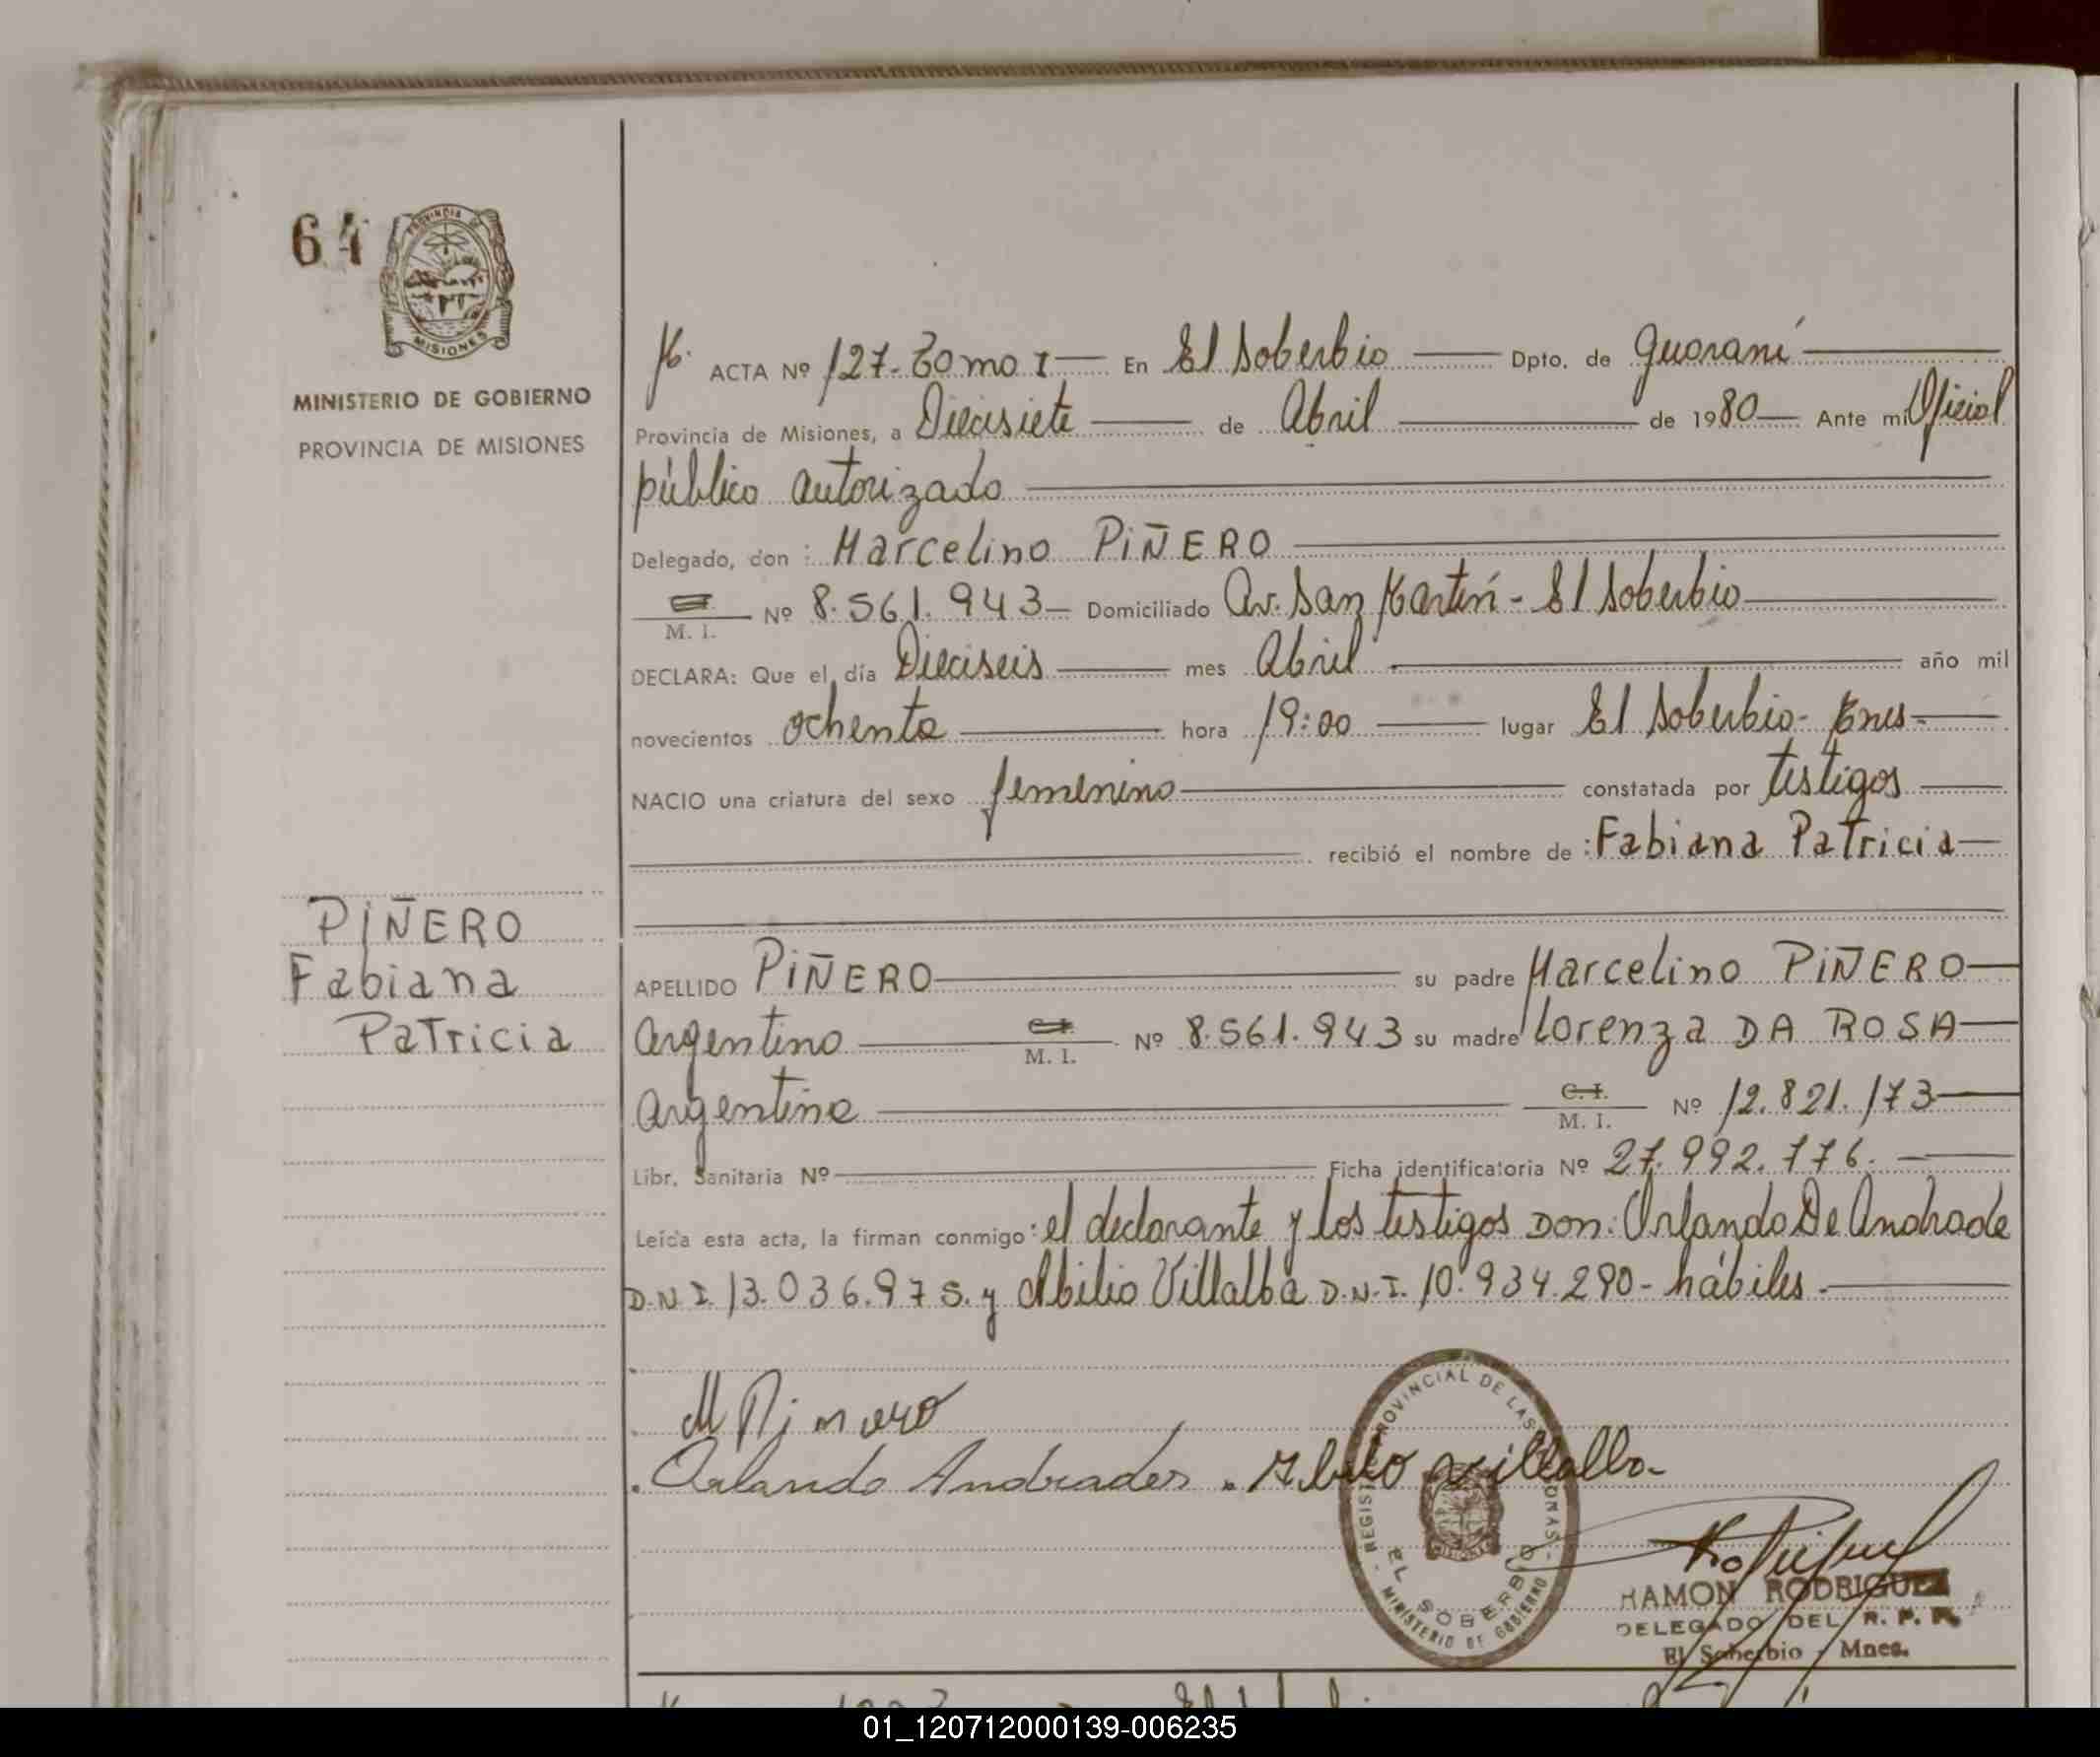 64
PROVINCIA DE
MISIONES
MINISTERIO DE GOBIERNO
PROVINCIA DE MISIONES
ACTA Nº 127-Tomo I En El Soberbio Dpto. de Guaraní
Provincia de Misiones, a Diecisiete de Abril de 1980 Ante mi Oficial
público autorizado
Delegado, don: Marcelino PIÑERO
M. I. Nº 8.561.943 Domiciliado Av. San Martín - El Soberbio
DECLARA: Que el día Dieciseis mes Abril año mil
novecientos ochenta hora 19:00 lugar El Soberbio-
NACIO una criatura del sexo femenino constatada por testigos
recibió el nombre de: Fabiana Patricia
PIÑERO
Fabiana
Patricia
APELLIDO PIÑERO su padre Marcelino PIÑERO
argentino C.I. M. I. Nº 8.561.943 su madre Lorenza DA ROSA
argentina C.I. M. I. Nº 12.821.173
Libr. Sanitaria Nº Ficha identificatoria Nº 27.992.776.
Leída esta acta, la firman conmigo: el declarante y los testigos Don: Orlando De Andrade
D.N.I. 13.036.975. y Abilio Villalba D.N.I. 10.934.290- hábiles.
Orlando Andrades
REGISTRO PROVINCIAL DE LAS PERSONAS
EL SOBERBIO
MINISTERIO DE GOBIERNO
MISIONES
RAMON RODRIGUEZ
DELEGADO DEL R. P. P.
El Soberbio - Mnes.
01_120712000139-006235